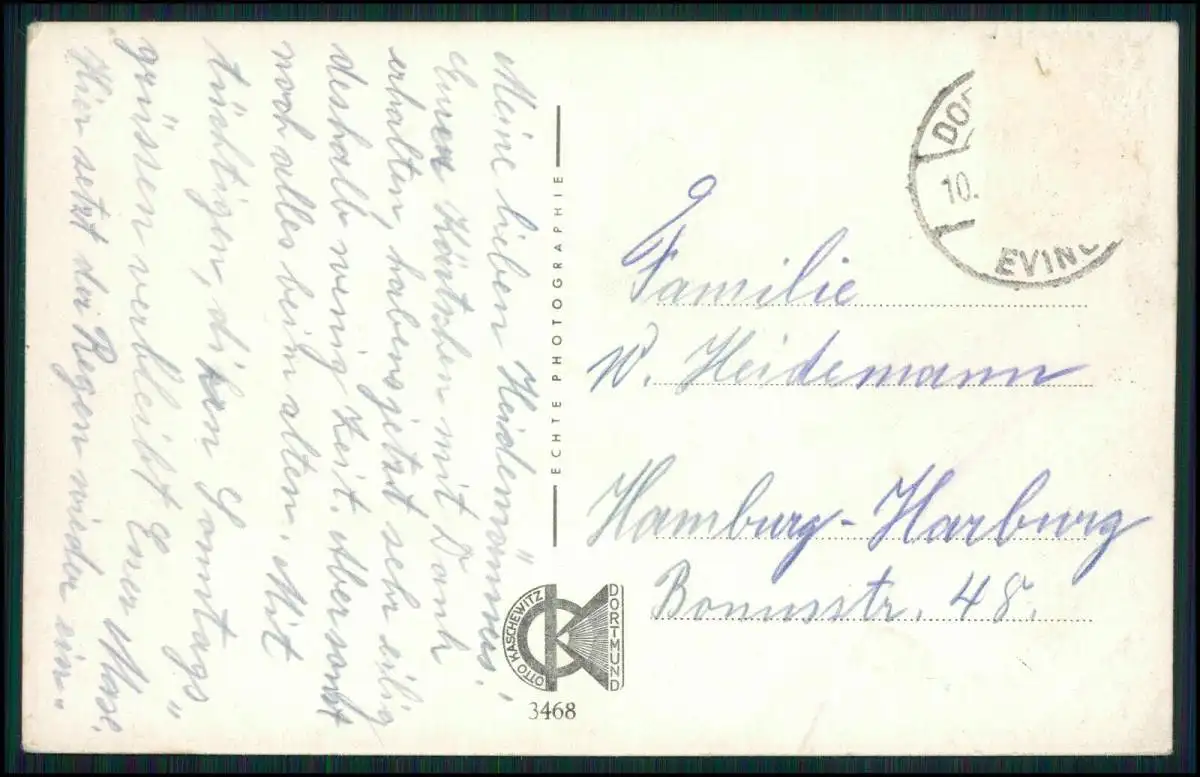 Meine lieben Heidemänner!
Euer Kärtchen mit Dank
erhalten, haben jetzt sehr eilig
deshalb wenig Zeit. Aber sonst
noch alles beim alten. Mit
tüchtigen, Sonntags
grüssen verbleibt Euer
Hier setzt der Regen wieder ein.
ECHTE PHOTOGRAPHIE
OTTO KASCHEWITZ
DORTMUND
3468
DO
10.
EVING
Familie
W. Heidemann
Hamburg-Harburg
Bonusstr. 48.